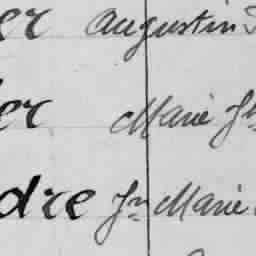 er Augustin
er Marie Jh
dre Jn Marie